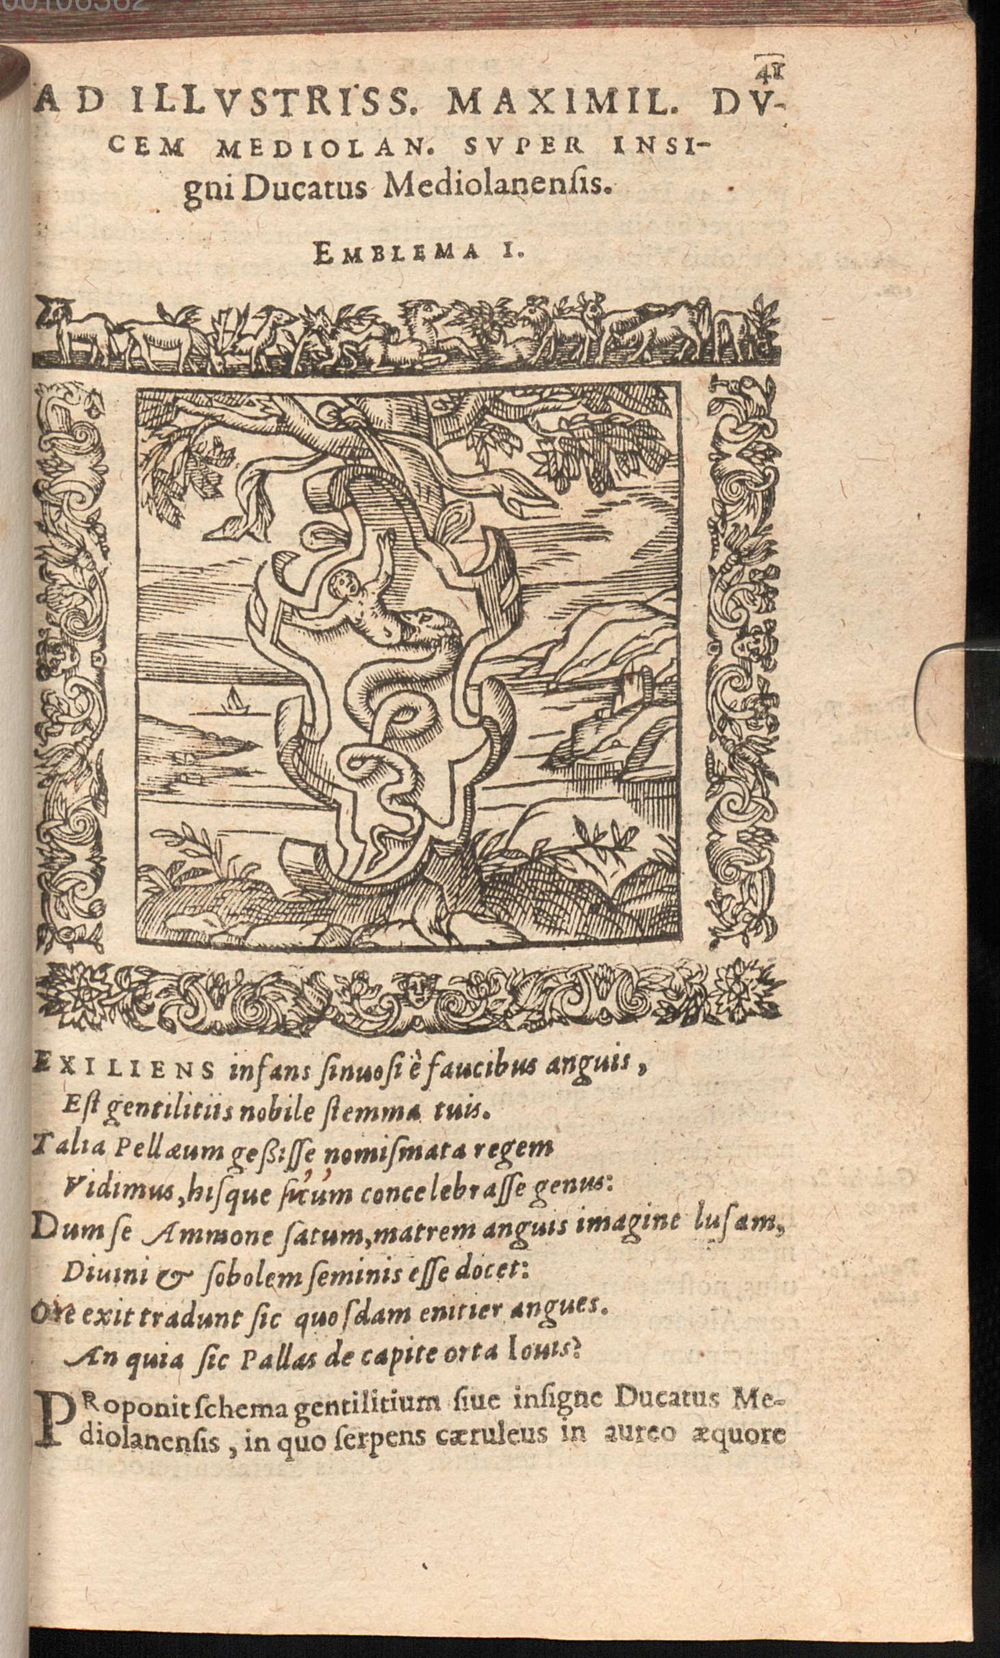 41
AD ILLVSTRISS. MAXIMIL. DV-
CEM MEDIOLAN. SVPER INSI-
gni Ducatus Mediolanenſis.
EMBLEMA I.
EXILIENS infans ſinuoſi è faucibus anguis,
Eſt gentilitiis nobile ſtemma tuis.
Talia Pellæum geßiſſe nomiſmata regem
Vidimus, hiſque ſuum concelebraſſe genus:
Dum ſe Ammone ſatum, matrem anguis imagine luſam,
Diuini & ſobolem ſeminis eſſe docet:
Ore exit tradunt ſic quoſdam enitier angues.
An quia ſic Pallas de capite orta Iouis?
PRoponit ſchema gentilitium ſiue inſigne Ducatus Me-
diolanenſis, in quo ſerpens cæruleus in aureo æquore